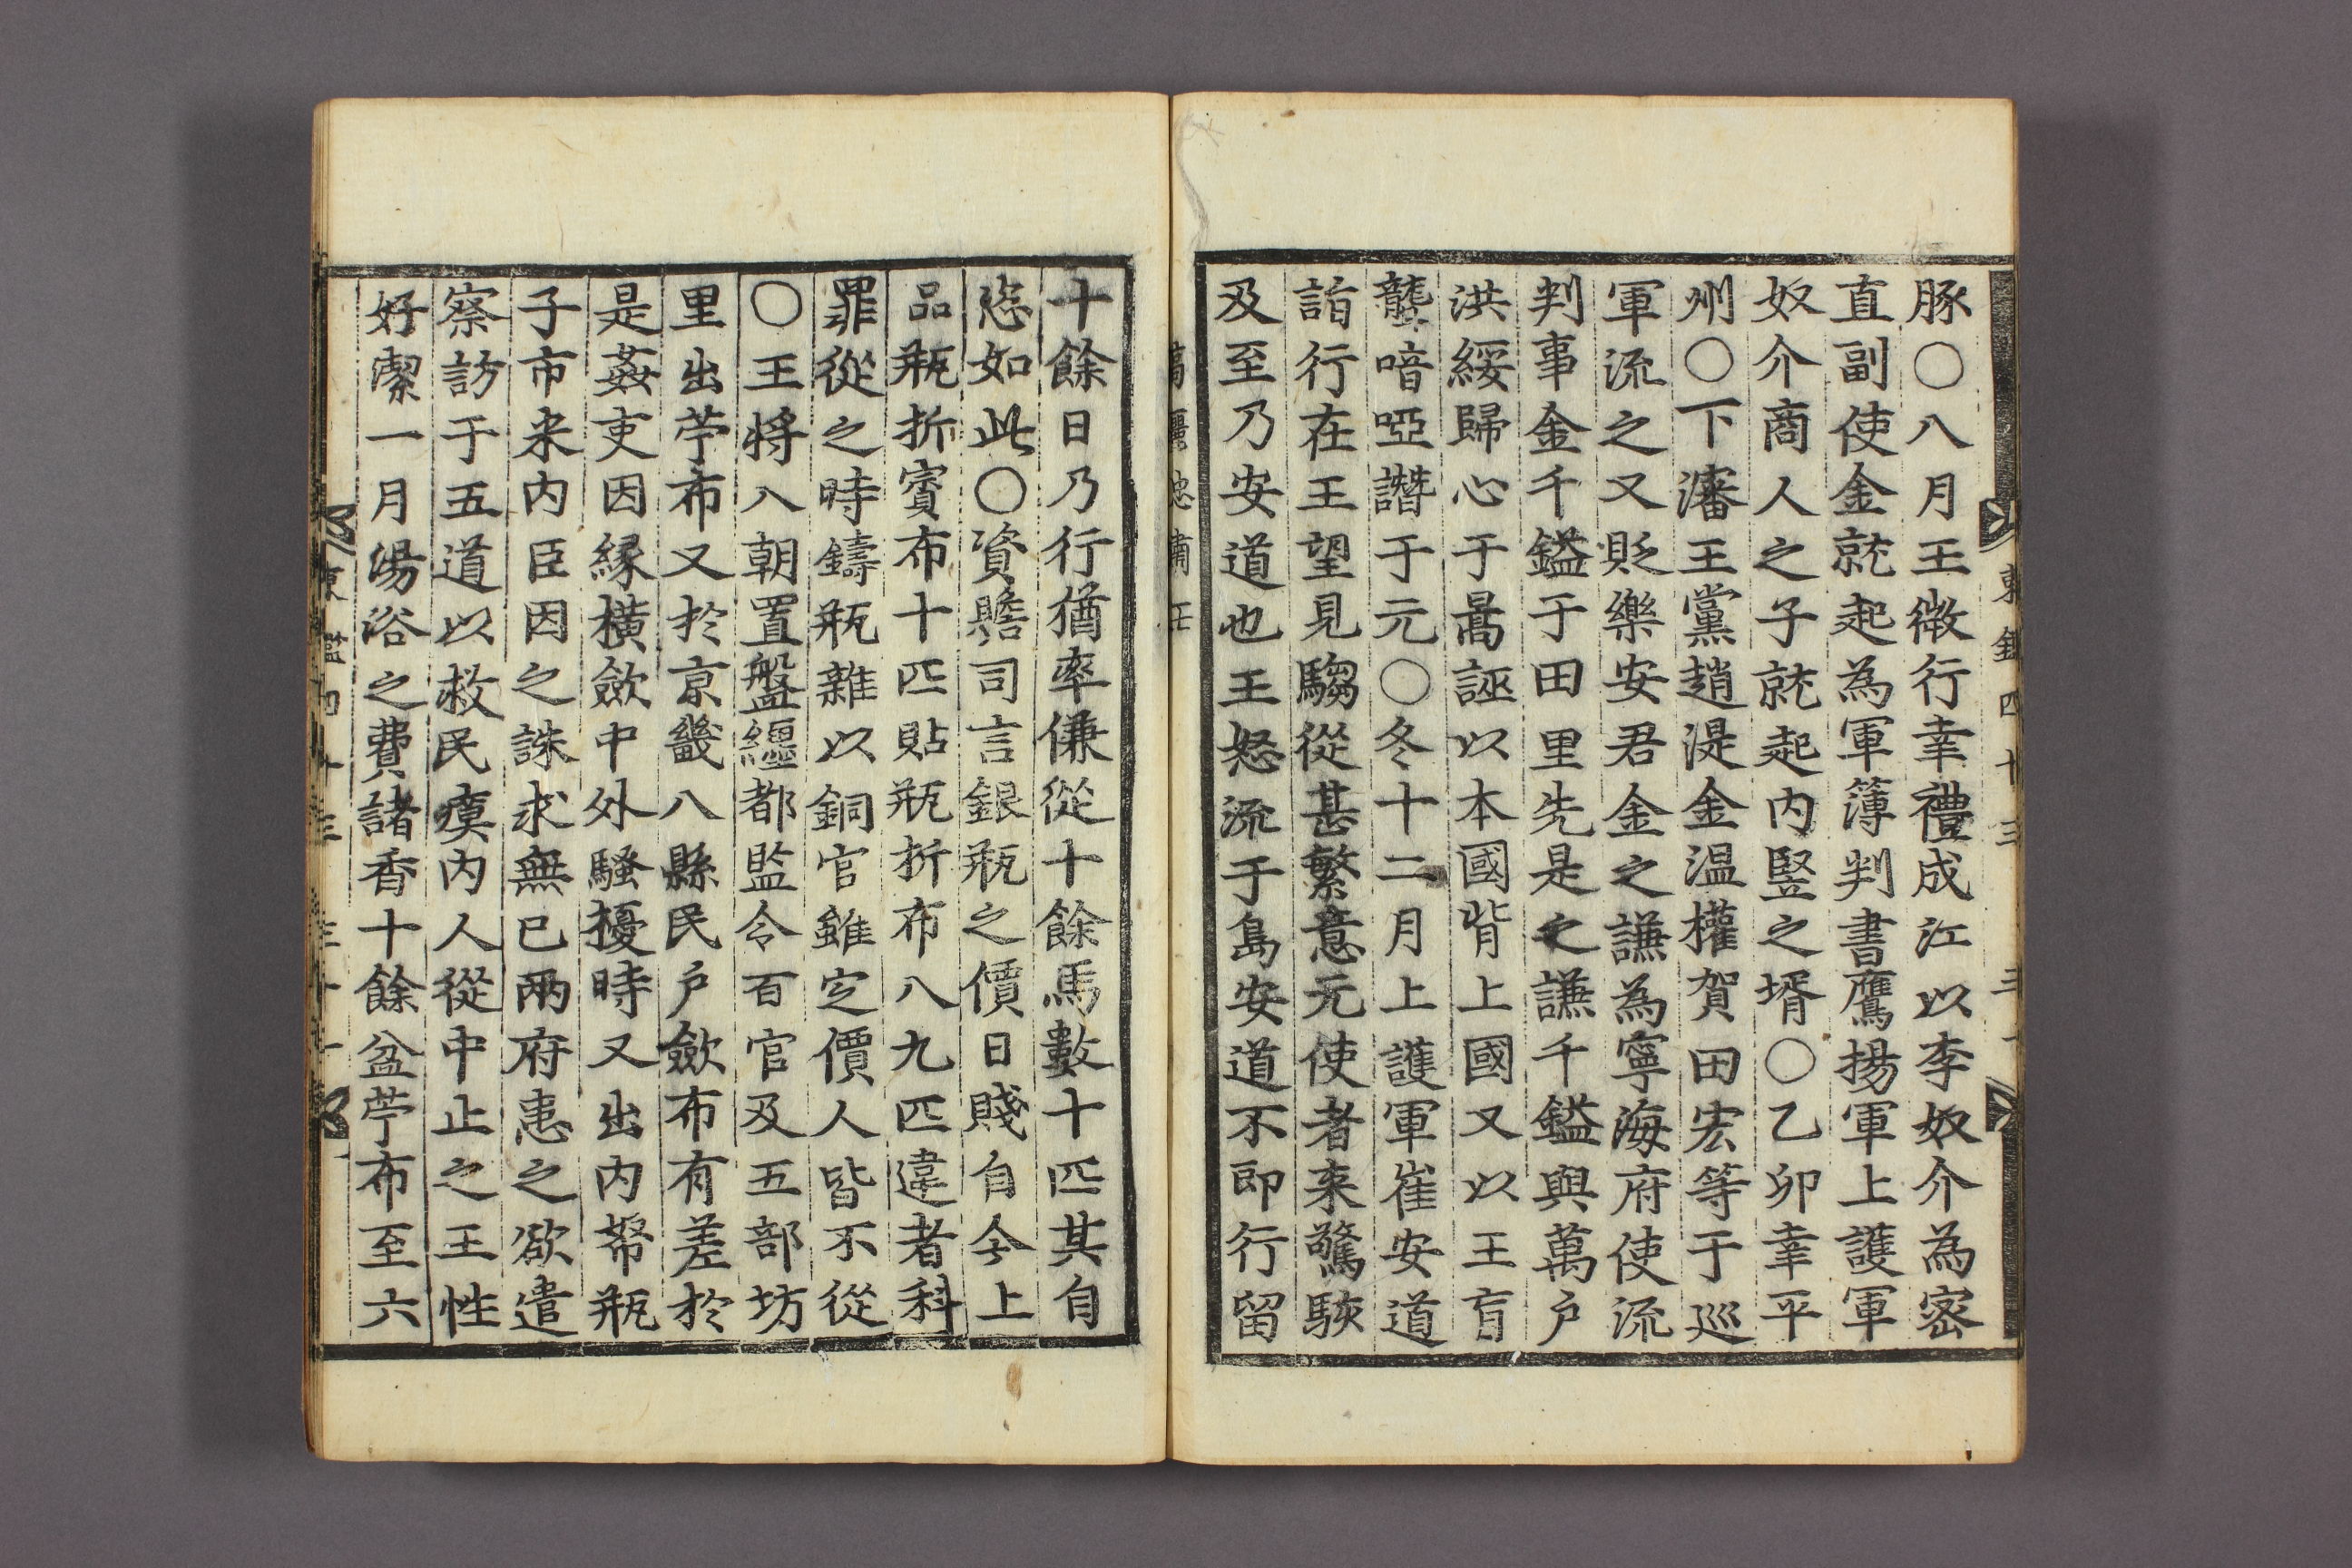 豚○八月王微行幸禮成江以李奴介為密
直副使金就起為軍簿判書鷹揚軍上護軍
奴介商人之子就起内竪之壻○乙卯幸平
州○下瀋王黨趙湜金温權賀田宏等于巡
軍流之又貶樂安君金之謙為寧海府使流
判事金千鎰于田里先是之謙千鎰與萬户
洪綏歸心于暠誣以本國背上國又以王盲
聾喑啞譖于元○冬十二月上護軍崔安道
詣行在王望見騶從甚繁意元使者来驚駭
及至乃安道也王怒流于島安道不即行留
十餘日乃行猶率傔從十餘馬數十匹其自
恣如此○資贍司言銀瓶之價日賤自今上
品瓶折賨布十匹貼瓶折布八九匹違者科
罪從之時鑄瓶雜以銅官雖定價人皆不從
○王将八朝置盤纏都監令百官及五部坊
里出苧布又於京畿八縣民户斂布有差於
是姦吏因緣横斂中外騷擾時又出内帑瓶
子市来内臣因之誅求無已兩府患之欲遣
察訪于五道以救民瘼内人從中止之王性
好潔一月湯浴之費諸香十餘盆苧布至六
東鑑四十三 三十一